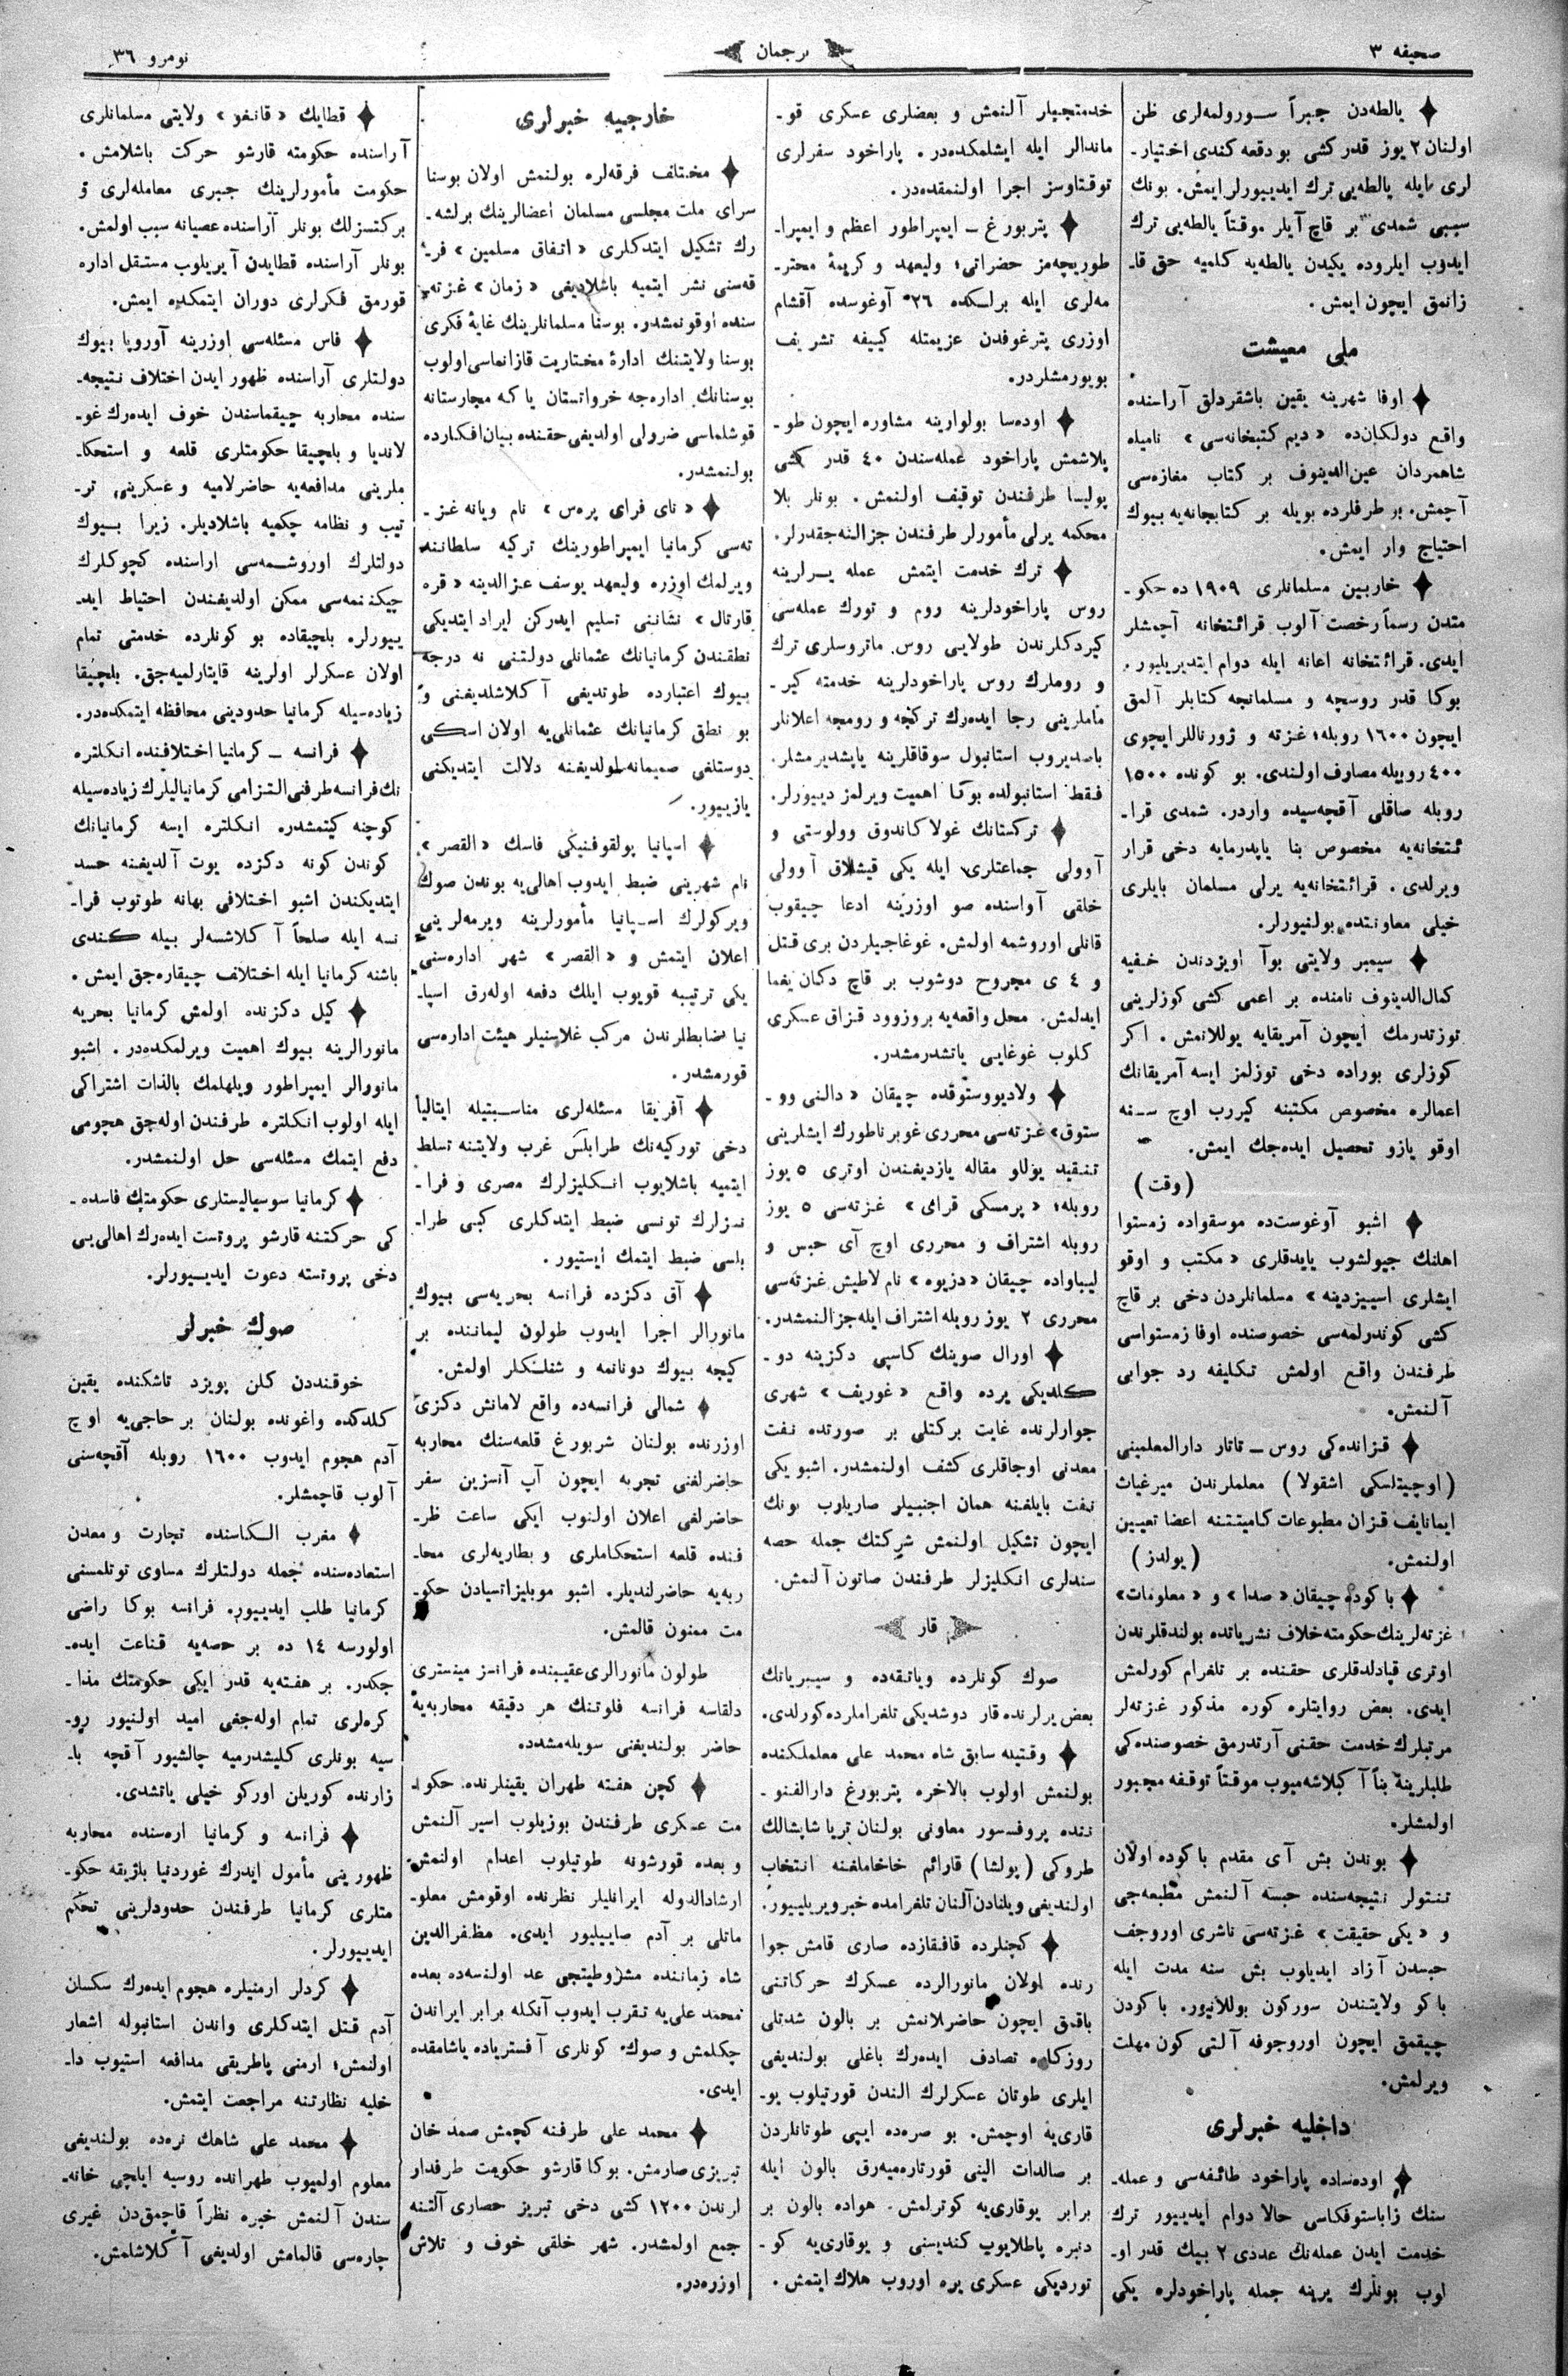 صحیفه ٣
ترجمان
نومرو ٣٦
یالطه‌دن جبراً سورولمه‌لری ظن
اولنان ٢ یوز قدر کشی بو دقعه کندی اختیار-
لری ایله یالطه‌یی ترك ایدییورلر ایمش. بونك
سببی شمدی بر قاچ آیلر موقتاً یالطه‌یی ترك
ایدوب ایلروده یکیدن یالطه‌یه کلمیه حق قا-
زانمق ایچون ایمش.
ملی معیشت
اوفا شهرینه یقین باشقردلق آراسنده
واقع دولکان‌ده « دیم کتبخانه‌سی » نامیله
شاهمردان عین‌الدینوف بر کتاب مغازه‌سی
آچمش. بو طرفلرده بویله بر کتابخانه‌یه بیوك
احتیاج وار ایمش.
خاربین مسلمانلری ١٩٠٩ ده حکو-
متدن رسماً رخصت آلوب قرائتخانه آچمشلر
ایدی. قرائتخانه اعانه ایله دوام ایتدیریلیور.
بوکا قدر روسچه و مسلمانجه کتابلر آلمق
ایچون ١٦٠٠ روبله؛ غزته و ژورناللر ایچون
٤٠٠ روبیله مصارف اولندی. بو کونده ١٥٠٠
روبله صاقلی آقچه‌سیده واردر. شمدی قرا-
ئتخانه‌یه مخصوص بنا یاپدرمایه دخی قرار
ویرلدی. قرائتخانه‌یه یرلی مسلمان بایلری
خیلی معاونتده بولنیورلر.
سیمبر ولایتی بوآ اویزدندن خفیه
کمال‌الدینوف نامنده بر اعمی کشی کوزلرینی
توزتدرمك ایچون آمریقایه یوللانمش. اکر
کوزلری بوراده دخی توزلمز ایسه آمریقانك
اعمالره مخصوص مکتبنه کیروب اوچ سنه
اوقو یازو تحصیل ایده‌جك ایمش.
( وقت )
اشبو آوغوست‌ده موسقواده زمستوا
اهلنك جیولشوب یاپدقلری « مکتب و اوقو
ایشلری اسییزدینه » مسلمانلردن دخی بر قاچ
کشی کوندرلمه‌سی خصوصنده اوفا زمستواسی
طرفندن واقع اولمش تکلیفه رد جوابی
آلنمش.
قزانده‌کی روس ــ تاتار دارالمعلمینی
( اوچیتلسکی اشقولا ) معلملرندن میرغیاث
ایمانایف قزان مطبوعات کامیتتنه اعضا تعیین
اولنمش.   ( یولدز )
باکوده چیقان « صدا » و « معلومات »
غزته‌لرینك حکومته خلاف نشریاتده بولندقلرندن
اوتری قپادلدقلری حقنده بر تلغرام کورلمش
ایدی. بعض روایتلره کوره مذکور غزته‌لر
مرتبلرك خدمت حقنی آرتدرمق خصوصنده‌کی
طلبلرینه بناً آکلاشه‌میوب موقتاً توقفه مجبور
اولمشلر.
بوندن بش آی مقدم باکوده اولان
تنتولر نتیجه‌سنده حبسه آلنمش مطبعه‌جی
و « یکی حقیقت » غزته‌سی ناشری اوروجف
حبسدن آزاد ایدیلوب بش سنه مدت ایله
باکو ولایتندن سورکون یوللانیور. باکودن
چیقمق ایچون اوروجوفه آلتی کون مهلت
ویرلمش.
داخلیه خبرلری
اوده‌ساده پاراخود طائفه‌سی و عمله-
سنك زاباستوفکاسی حالا دوام ایدییور ترك
خدمت ایدن عمله‌نك عددی ٢ بیك قدر او-
لوب بونلرك یرینه جمله پاراخودلره یکی
خدمتچیلر آلنمش و بعضلری عسکری قو-
ماندالر ایله ایشلمکده‌در. پاراخود سفرلری
توقتاوسز اجرا اولنمقده‌در.
پتربورغ ــ ایمپراطور اعظم و ایمپرا-
طوریچه‌مز حضراتی؛ ولیعهد و کریمهٔ محتر-
مه‌لری ایله برلکده ٢٦ آوغوسده آقشام
اوزری پترغوفدن عزیمتله کییفه تشریف
بویورمشلردر.
اوده‌سا بولوارینه مشاوره ایچون طو-
پلاشمش پاراخود عمله‌سندن ٤٠ قدر کشی
پولیسا طرفندن توقیف اولنمش. بونلر بلا
محکمه یرلی مأمورلر طرفندن جزالنه‌جقدرلر.
ترك خدمت ایتمش عمله یرلرینه
روس پاراخودلرینه روم و تورك عمله‌سی
کیردکلرندن طولایی روس ماتروسلری ترك
و روملرك روس پاراخودلرینه خدمته کیر-
ماملرینی رجا ایده‌رك ترکچه و رومجه اعلانلر
باصدیروب استانبول سوقاقلرینه یاپشدیرمشلر.
فقط استانبولده بوکا اهمیت ویرلمز دییورلر.
ترکستانك غولاکاندوق وولوستی و
آوولی جماعتلری ایله یکی قیشلاق آوولی
خلقی آراسنده صو اوزرینه ادعا چیقوب
قانلی اوروشمه اولمش. غوغاجیلردن بری قتل
و ٤ ی مجروح دوشوب بر قاچ دکان یغما
ایدلمش. محل واقعه‌یه بروزوود قزاق عسکری
کلوب غوغایی یاتشدرمشدر.
ولادیووستوقده چیقان « دالنی وو-
ستوق » غزته‌سی محرری غوبرناطورك ایشلرینی
تنقید یوللو مقاله یازدیغندن اوتری ٥ یوز
روبله؛ « پرمسکی قرای » غزته‌سی ٥ یوز
روبله اشتراف و محرری اوچ آی حبس و
لیباواده چیقان « دزیوه » نام لاطیش غزته‌سی
محرری ٢ یوز روبله اشتراف ایله جزالنمشدر.
اورال صوینك کاسپی دکزینه دو-
کلدیکی یرده واقع « غوریف » شهری
جوارلرنده غایت برکتلی بر صورتده نفت
معدنی اوجاقلری کشف اولنمشدر. اشبو یکی
نفت بایلغنه همان اجنبیلر صاریلوب بونك
ایچون تشکیل اولنمش شرکتك جمله حصه
سندلری انکلیزلر طرفندن صاتون آلنمش.
قار
صوك کونلرده ویاتقه‌ده و سیبریانك
بعض یرلرنده قار دوشدیکی تلغراملرده کورلدی.
وقتیله سابق شاه محمد علی معلملکنده
بولنمش اولوب بالاخره پتربورغ دارالفنو-
ننده پروفسور معاونی بولنان تریا شاپشالك
طروکی ( پولشا ) قارائم خاخاملغنه انتخاب
اولندیغی ویلنادن آلنان تلغرامده خبر ویریلییور.
کچنلرده قافقازده صاری قامش جوا
رنده اولان مانورالرده عسکرك حرکاتنی
باقمق ایچون حاضرلانمش بر بالون شدتلی
روزکاره تصادف ایده‌رك باغلی بولندیغی
ایلری طوتان عسکرلرك الندن قورتیلوب یو-
قاری‌یه اوچمش. بو صره‌ده ایپی طوتانلردن
بر صالدات الینی قورتاره‌میه‌رق بالون ایله
برابر یوقاری‌یه کوترلمش. هواده بالون بر
دنبره پاطلایوب کندیسنی و یوقاری‌یه کو-
توردیکی عسکری یره اوروب هلاك ایتمش.
خارجیه خبرلری
مختلف فرقه‌لره بولنمش اولان بوسنا
سرای ملت مجلسی مسلمان اعضالرینك برلشه-
رك تشکیل ایتدکلری « اتفاق مسلمین » فر-
قه‌سنی نشر ایتمیه باشلادیغی « زمان » غزته-
سنده اوقونمشدر. بوسنا مسلمانلرینك غایهٔ فکری
بوسنا ولایتنك ادارهٔ مختاریت قازانماسی اولوب
بوسنانك اداره‌جه خرواتستان یاکه مجارستانه
قوشلماسی ضررلی اولدیغی حقنده بیان افکارده
بولنمشدر.
« نای فرای پره‌س » نام ویانه غز-
ته‌سی کرمانیا ایمپراطورینك ترکیه سلطاننه
ویرلمك اوزره ولیعهد یوسف عزالدینه « قره
قارتال » نشاننی تسلیم ایدرکن ایراد ایتدیکی
نطقندن کرمانیانك عثمانلی دولتنی نه درجه
بیوك اعتبارده طوتدیغی آکلاشلدیغنی و
بو نطق کرمانیانك عثمانلی‌یه اولان اسکی
دوستلغی صمیمانه اولدیغنه دلالت ایتدیکنی
یازییور.
اسپانیا پولقوفنیکی فاسك « القصر »
نام شهرینی ضبط ایدوب اهالی‌یه بوندن صوك
ویرکولرك اسپانیا مأمورلرینه ویرمه‌لرینی
اعلان ایتمش و « القصر » شهر اداره‌سنی
یکی ترتیبه قویوب ایلك دفعه اوله‌رق اسپا-
نیا ضابطلرندن مرکب غلاسنیلر هیئت اداره‌سی
قورمشدر.
آفریقا مسئله‌لری مناسبتیله ایتالیا
دخی تورکیه‌نك طرابلس غرب ولایتنه تسلط
ایتمیه باشلایوب انکلیزلرك مصری و فرا-
نسزلرك تونسی ضبط ایتدکلری کبی طرا-
بلسی ضبط ایتمك ایستیور.
آق دکزده فرانسه بحریه‌سی بیوك
مانورالر اجرا ایدوب طولون لیماننده بر
کیجه بیوك دونانمه و شنلکلر اولمش.
شمالی فرانسه‌ده واقع لامانش دکزی
اوزرنده بولنان شربورغ قلعه‌سنك محاربه
حاضرلغنی تجربه ایچون آپ آنسزین سفر
حاضرلغی اعلان اولنوب ایکی ساعت ظر-
فنده قلعه استحکاملری و بطاریه‌لری محا-
ربه‌یه حاضرلندیلر. اشبو موبلیزاتسیادن حکو-
مت ممنون قالمش.
طولون مانورالری عقیبنده فرانسز مینستری
دلقاسه فرانسه فلوتنك هر دقیقه محاربه‌یه
حاضر بولندیغنی سویله‌مشدد.
کچن هفته طهران یقینلرنده حکو-
مت عسکری طرفندن بوزیلوب اسیر آلنمش
و بعده قورشونه طوتیلوب اعدام اولنمش
ارشادالدوله ایرانلیلر نظرنده اوقومش معلو-
ماتلی بر آدم صاییلیور ایدی. مظفرالدین
شاه زماننده مشروطیتجی عد اولنسه‌ده بعده
محمد علی‌یه تقرب ایدوب آنکله برابر ایراندن
چکلمش و صوك کونلری آفستریاده یاشامقده
ایدی.
محمد علی طرفنه کچمش صمد خان
تبریزی صارمش. بوکا قارشو حکومت طرفدار
لرندن ١٢٠٠ کشی دخی تبریز حصاری آلتنه
جمع اولمشدر. شهر خلقی خوف و تلاش
اوزره‌در.
قطایك « قانغو » ولایتی مسلمانلری
آراسنده حکومته قارشو حرکت باشلامش.
حکومت مأمورلرینك جبری معامله‌لری و
برکتسزلك بونلر آراسنده عصیانه سبب اولمش.
بونلر آراسنده قطایدن آیریلوب مستقل اداره
قورمق فکرلری دوران ایتمکده ایمش.
فاس مسئله‌سی اوزرینه آوروپا بیوك
دولتلری آراسنده ظهور ایدن اختلاف نتیجه-
سنده محاربه چیقماسندن خوف ایده‌رك غو-
لاندیا و بلچیقا حکومتلری قلعه و استحکا-
ملرینی مدافعه‌یه حاضرلامیه و عسکرینی تر-
تیب و نظامه چکمیه باشلادیلر. زیرا بیوك
دولتلرك اوروشمه‌سی اراسنده کچوکلرك
چیکننمه‌سی ممکن اولدیغندن احتیاط اید-
ییورلر. بلچیقاده بو کونلرده خدمتی تمام
اولان عسکرلر اولرینه قایتارلمیه‌جق. بلچیقا
زیاده‌سیله کرمانیا حدودینی محافظه ایتمکده‌در.
فرانسه ــ کرمانیا اختلافنده انکلتره
نك فرانسه طرفنی التزامی کرمانیالیلرك زیاده‌سیله
کوچنه کیتمشدر. انکلتره ایسه کرمانیانك
کوندن کونه دکزده یوت آلدیغنه حسد
ایتدیکندن اشبو اختلافی بهانه طوتوب فرا-
نسه ایله صلحاً آکلاشسه‌لر بیله کندی
باشنه کرمانیا ایله اختلاف چیقاره‌جق ایمش.
کیل دکزنده اولمش کرمانیا بحریه
مانورالرینه بیوك اهمیت ویرلمکده‌در. اشبو
مانوورالر ایمپراطور ویلهلمك بالذات اشتراکی
ایله اولوب انکلتره طرفندن اوله‌جق هجومی
دفع ایتمك مسئله‌سی حل اولنمشدر.
کرمانیا سوسیالیستلری حکومتك فاسده-
کی حرکتنه قارشو پروتست ایده‌رك اهالی‌یی
دخی پروتسته دعوت ایدییورلر.
صوك خبرلر
خوقنددن کلن پویزد تاشکنده یقین
کلدکده واغونده بولنان بر حاجی‌یه اوچ
آدم هجوم ایدوب ١٦٠٠ روبله آقچه‌سنی
آلوب قاچمشلر.
مغرب الکاسنده تجارت و معدن
استعاده‌سنده جمله دولتلرك مساوی توتلمسنی
کرمانیا طلب ایدییور. فرانسه بوکا راضی
اولورسه ١٤ ده بر حصه‌یه قناعت ایده-
جکدر. بر هفته‌یه قدر ایکی حکومتك مذا-
کره‌لری تمام اوله‌جغی امید اولنیور رو-
سیه بونلری کلیشدرمیه چالشیور آقچه با-
زارنده کوریلن اورکو خیلی یاتشدی.
فرانسه و کرمانیا اره‌سنده محاربه
ظهورینی مأمول ایدرك غوردنیا بلژیقه حکو-
متلری کرمانیا طرفندن حدودلرینی تحکم
ایدییورلر.
کردلر ارمنیلره هجوم ایده‌رك سکسان
آدم قتل ایتدکلری واندن استانبوله اشعار
اولنمش؛ ارمنی پاطریقی مدافعه استیوب دا-
خلیه نظارتنه مراجعت ایتمش.
محمد علی شاهك نره‌ده بولندیغی
معلوم اولمیوب طهرانده روسیه ایلچی خانه-
سندن آلنمش خبره نظراً قاچمق‌دن غیری
چاره‌سی قالمامش اولدیغی آکلاشلمش.